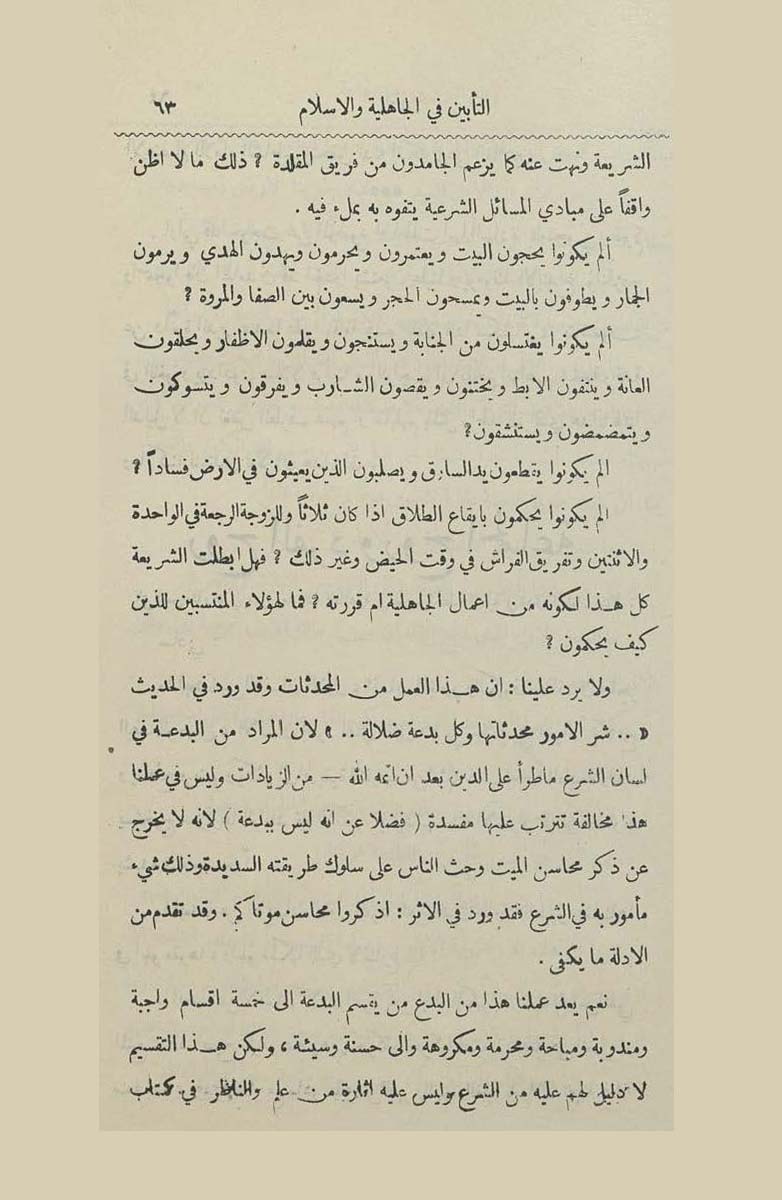 التأبين في الجاهلية والاسلام ٦٣
الشريعة ونهت عنه كما يزعم الجامدون من فريق المقلدة ؟ ذلك ما لا اظن
واقفاً على مبادي المسائل الشرعية يتفوه به بملء فيه .
ألم يكونوا يحجون البيت ويعتمرون ويحرمون ويهدون الهدي ويرمون
الجمار ويطوفون بالبيت ويمسحون الحجر ويسعون بين الصفا والمروة ؟
ألم يكونوا يغتسلون من الجنابة ويستنجون ويقلمون الاظفار ويحلقون
العانة وينتفون الابط ويختنون ويقصون الشارب ويفرقون ويتسوكون
ويتمضمضون ويستنشقون؟
الم يكونوا يقطعون يد السارق ويصلبون الذين يعيثون في الارض فساداً ؟
الم يكونوا يحكمون بايقاع الطلاق اذا كان ثلاثاً وللزوجة الرجعة في الواحدة
والاثنتين وتفريق الفراش في وقت الحيض وغير ذلك ؟ فهل ابطلت الشريعة
كل هذا لكونه من اعمال الجاهلية ام قررته ؟ فما لهؤلاء المنتسبين للذين
كيف يحكمون ؟
ولا يرد علينا : ان هذا العمل من المحدثات وقد ورد في الحديث
« .. شر الامور محدثاتها وكل بدعة ضلالة .. » لان المراد من البدعة في
لسان الشرع ماطرأ على الدين بعد ان اتمه الله — من الزيادات وليس في عملنا
هذا مخالفة تترتب عليها مفسدة ( فضلا عن انه ليس ببدعة ) لانه لا يخرج
عن ذكر محاسن الميت وحث الناس على سلوك طريقته السديدة وذلك شيء
مأمور به في الشرع فقد ورد في الاثر : اذكروا محاسن موتاكم . وقد تقدم من
الادلة ما يكفى .
نعم يعد عملنا هذا من البدع من يقسم البدعة الى خمسة اقسام واجبة
ومندوبة ومباحة ومحرمة ومكروهة والى حسنة وسيئة ، ولكن هذا التقسيم
لا دليل لهم عليه من الشرع وليس عليه اثارة من علم والناظر في كتاب